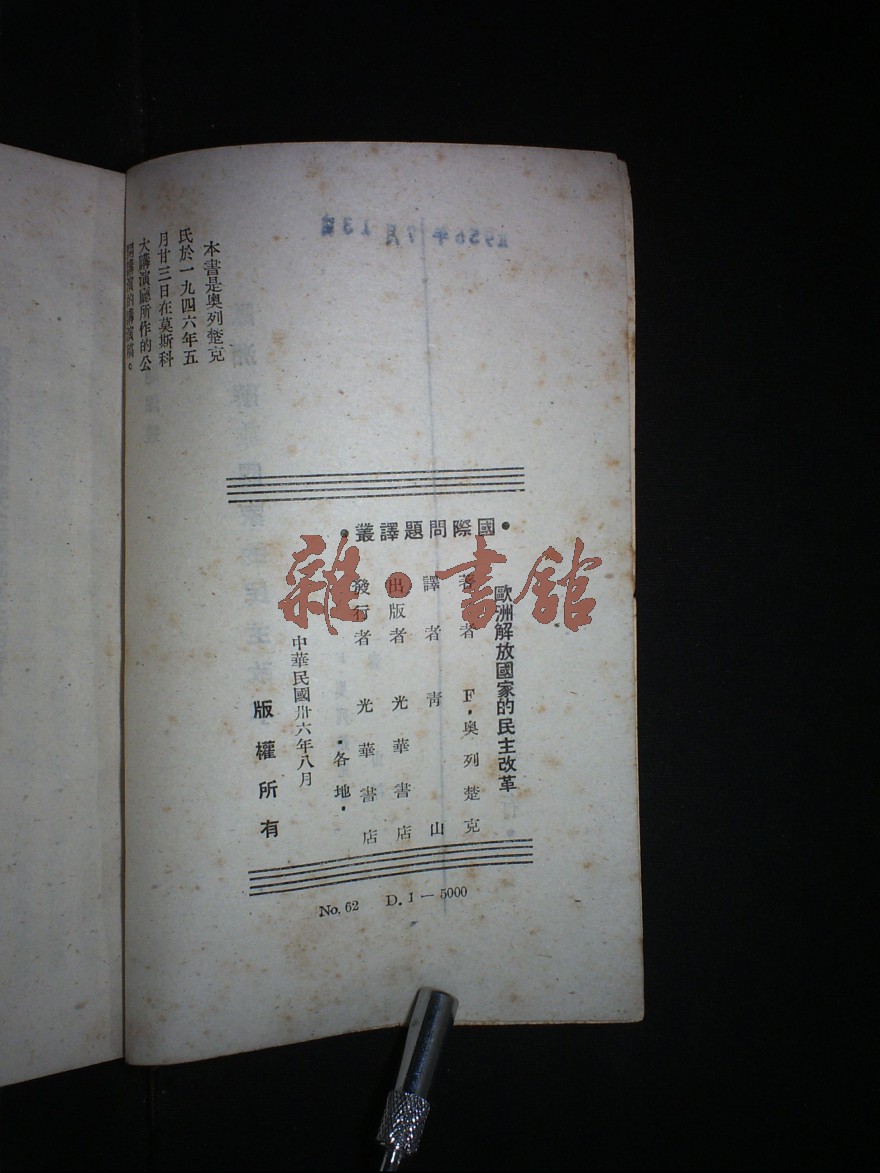 1956年7月13日
本書是奧列楚克
氏於一九四六年五
月廿三日在莫斯科
大講演廳所作的公
開講演的講演稿。
•國際問題譯叢•
歐洲解放國家的民主改革
著者 F·奧列楚克
譯者 青山
出版者 光華書店
發行者 光華書店
•各地•
中華民國卅六年八月
版權所有
No. 62 D. 1 — 5000
雜·書館